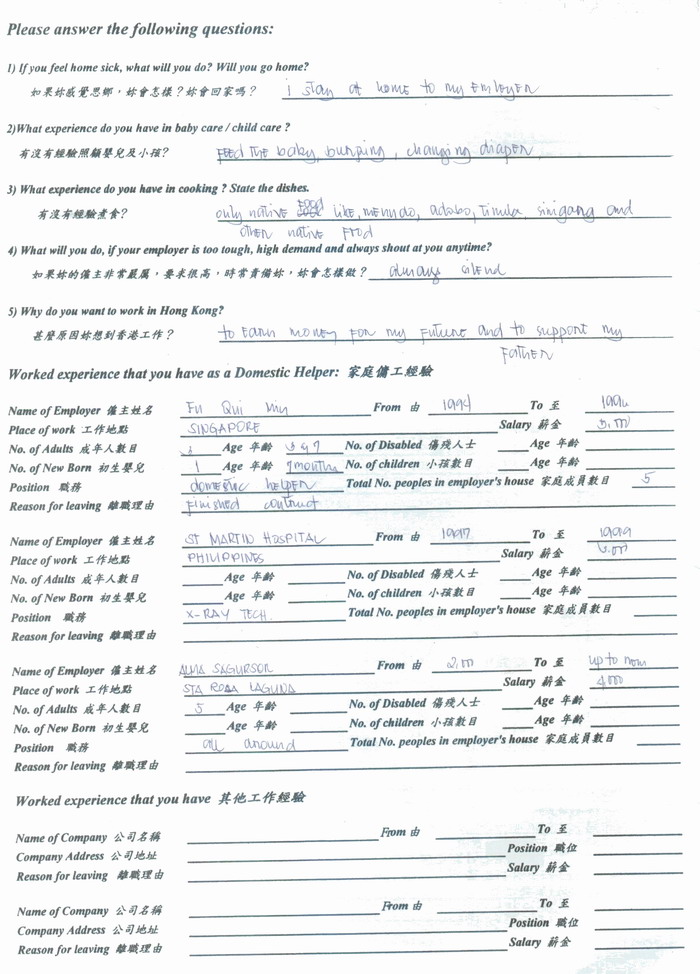 Please answer the following questions:
1) If you feel home sick, what will you do? Will you go home?
如果妳感覺思鄉，妳會怎樣？妳會回家嗎？ i stay at home to my Employer
2)What experience do you have in baby care / child care ?
有沒有經驗照顧嬰兒及小孩? FEED THE baby, burping, changing diaper
3) What experience do you have in cooking ? State the dishes.
有沒有經驗煮食? only native Food like, menudo, adobo, sinigang and
other native Food
4) What will you do, if your employer is too tough, high demand and always shout at you anytime?
如果妳的僱主非常嚴厲，要求很高，時常責備妳，妳會怎樣做？ always silend
5) Why do you want to work in Hong Kong?
甚麼原因妳想到香港工作？ to Earn money For my Future and to support my
FATHER
Worked experience that you have as a Domestic Helper: 家庭傭工經驗
Name of Employer 僱主姓名 Fu Qui From 由 1994 To 至
Place of work 工作地點 SINGAPORE Salary 薪金
No. of Adults 成年人數目 Age 年齡 No. of Disabled 傷殘人士 Age 年齡
No. of New Born 初生嬰兒 1 Age 年齡 7months No. of children 小孩數目 Age 年齡
Position 職務 domestic helper Total No. peoples in employer's house 家庭成員數目 5
Reason for leaving 離職理由 Finished contract
Name of Employer 僱主姓名 ST MARTIN HOSPITAL From 由 1997 To 至 1999
Place of work 工作地點 PHILIPPINES Salary 薪金
No. of Adults 成年人數目 Age 年齡 No. of Disabled 傷殘人士 Age 年齡
No. of New Born 初生嬰兒 Age 年齡 No. of children 小孩數目 Age 年齡
Position 職務 X-RAY TECH. Total No. peoples in employer's house 家庭成員數目
Reason for leaving 離職理由
Name of Employer 僱主姓名 ALMA From 由 2,000 To 至 up to now
Place of work 工作地點 STA ROSA LAGUNA Salary 薪金 4000
No. of Adults 成年人數目 5 Age 年齡 No. of Disabled 傷殘人士 Age 年齡
No. of New Born 初生嬰兒 Age 年齡 No. of children 小孩數目 Age 年齡
Position 職務 all around Total No. peoples in employer's house 家庭成員數目
Reason for leaving 離職理由
Worked experience that you have 其他工作經驗
Name of Company 公司名稱 From 由 To 至
Company Address 公司地址 Position 職位
Reason for leaving 離職理由 Salary 薪金
Name of Company 公司名稱 From 由 To 至
Company Address 公司地址 Position 職位
Reason for leaving 離職理由 Salary 薪金